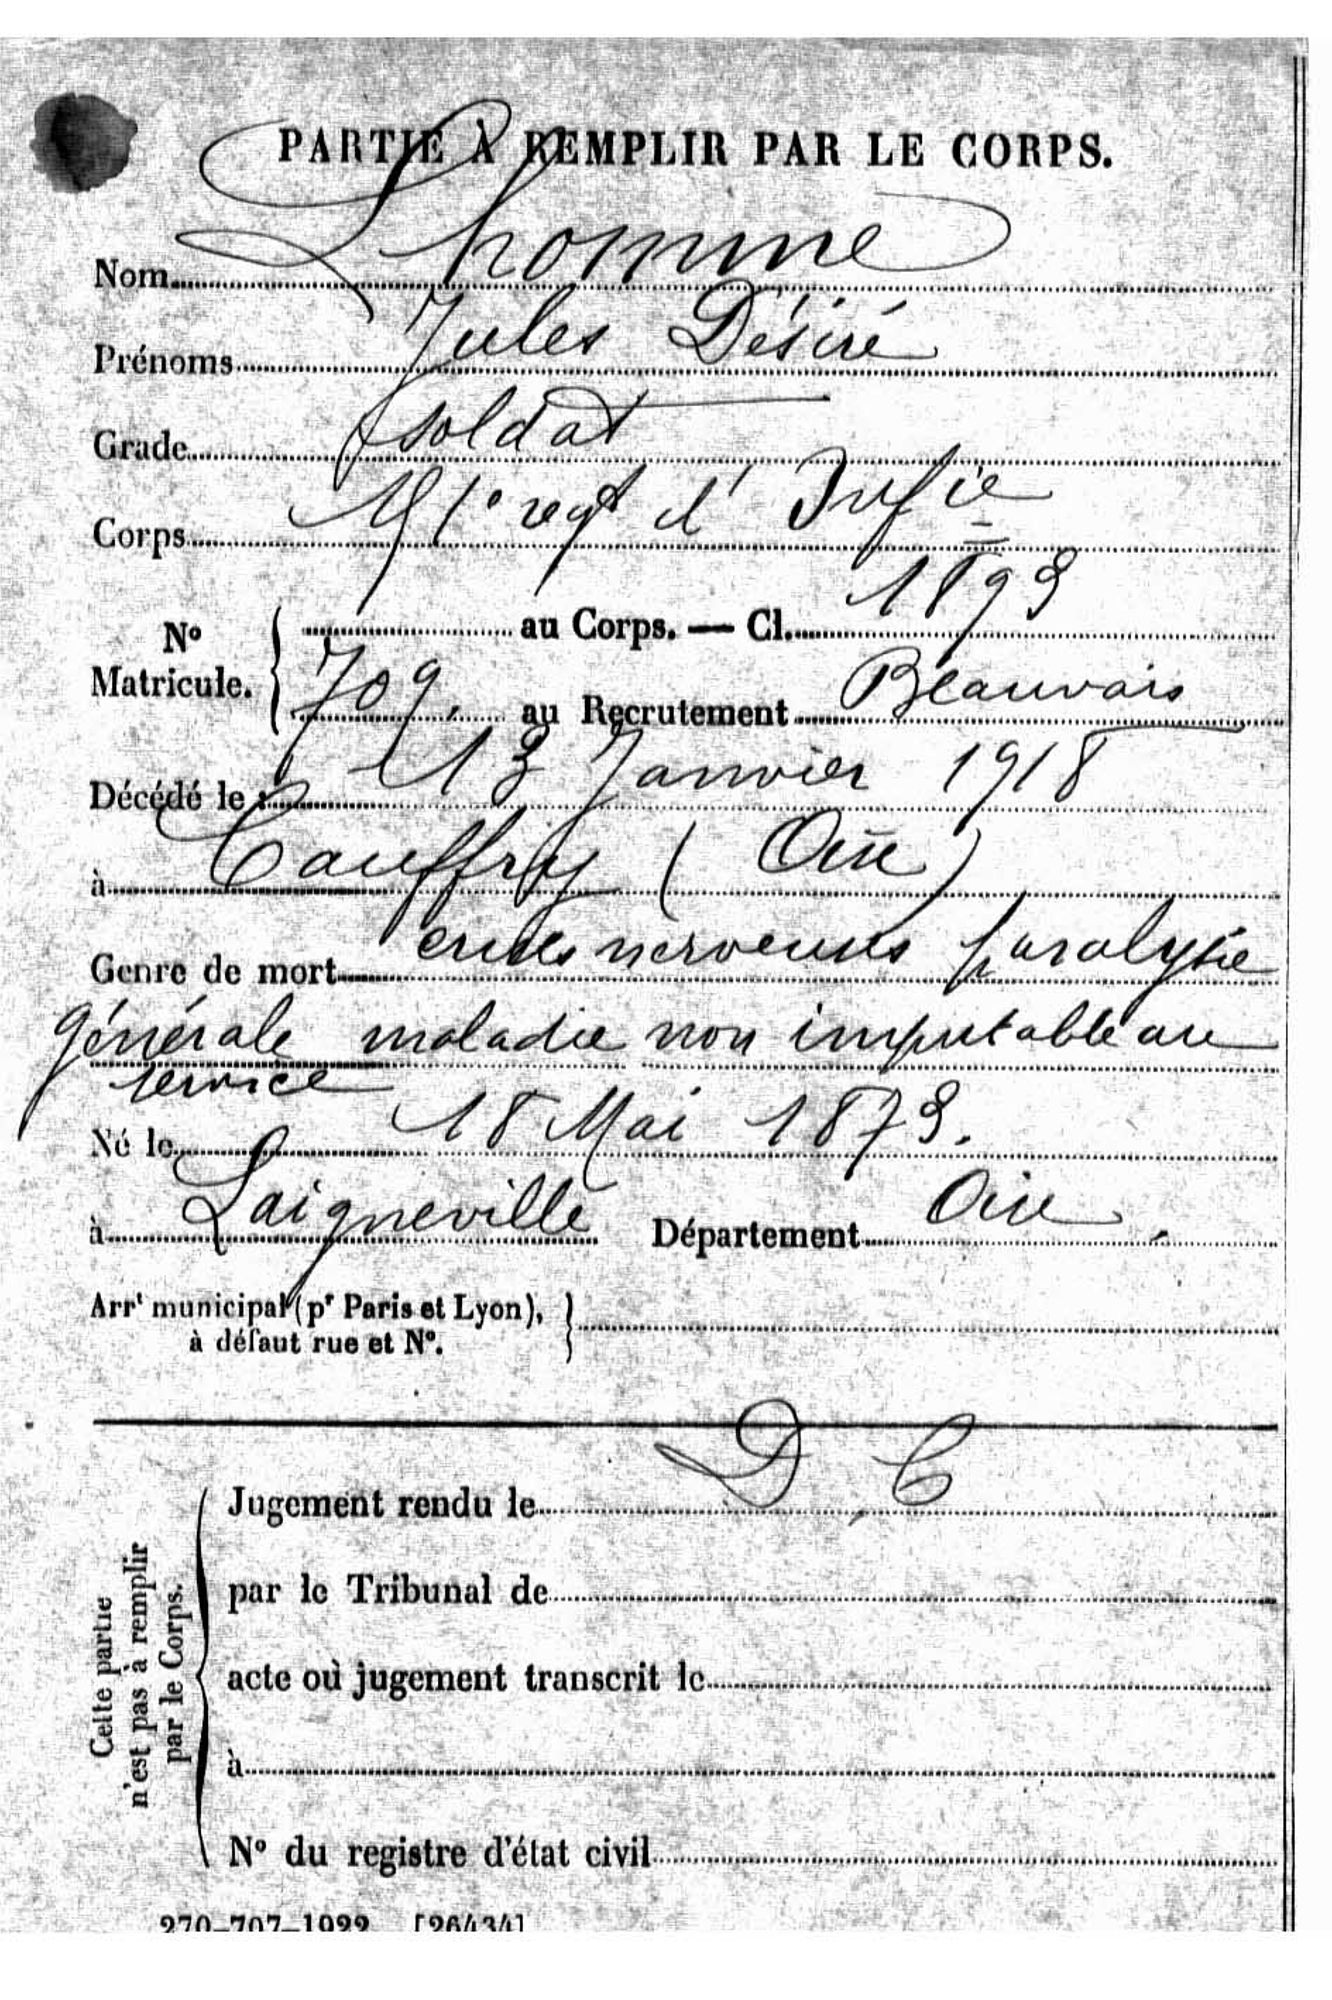 PARTIE À REMPLIR PAR LE CORPS.
Nom Lhomme
Prénoms Jules Désiré
Grade soldat
Corps 51e regt d'Infie
au Corps. — Cl. 1893
N° Matricule. 709. au Recrutement Beauvais
Décédé le : 13 Janvier 1918
à Cauffry (Oise)
Genre de mort crises nerveuses paralysie
générale maladie non imputable au
service
Né le 18 Mai 1873.
à Laigneville Département Oise.
Arrt municipal (pr Paris et Lyon),
à défaut rue et N°.
D C
Jugement rendu le
par le Tribunal de
acte ou jugement transcrit le
à
N° du registre d'état civil
Cette partie
n'est pas à remplir
par le Corps.
270-707-1922. [26434]